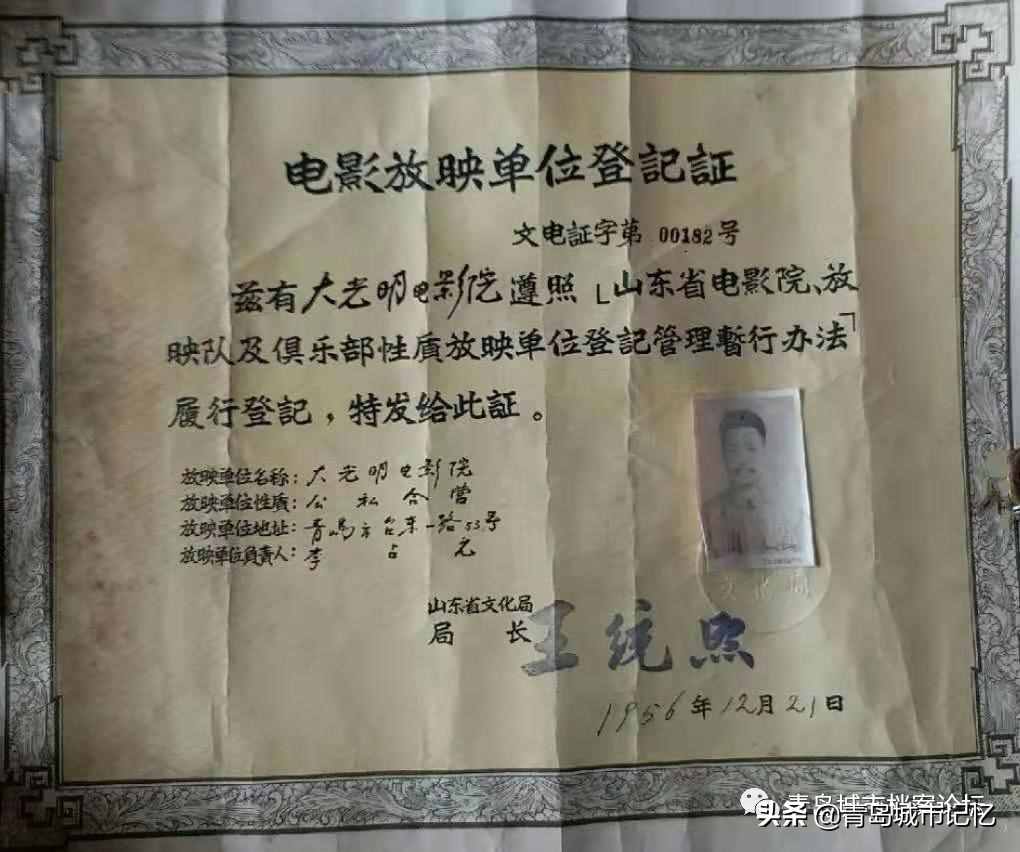 电影放映单位登記証
文电証字第 00182 号
兹有大光明电影院遵照「山东省电影院、放
映队及俱乐部性質放映单位登記管理暫行办法」
履行登記，特发给此証。
放映单位名称：大光明电影院
放映单位性質：公私合营
放映单位地址：青島市台东一路53号
放映单位負責人：李占元
山东省文化局
局 长 王统照
1956年12月21日
青岛城市档案论坛
头条 @青岛城市记忆